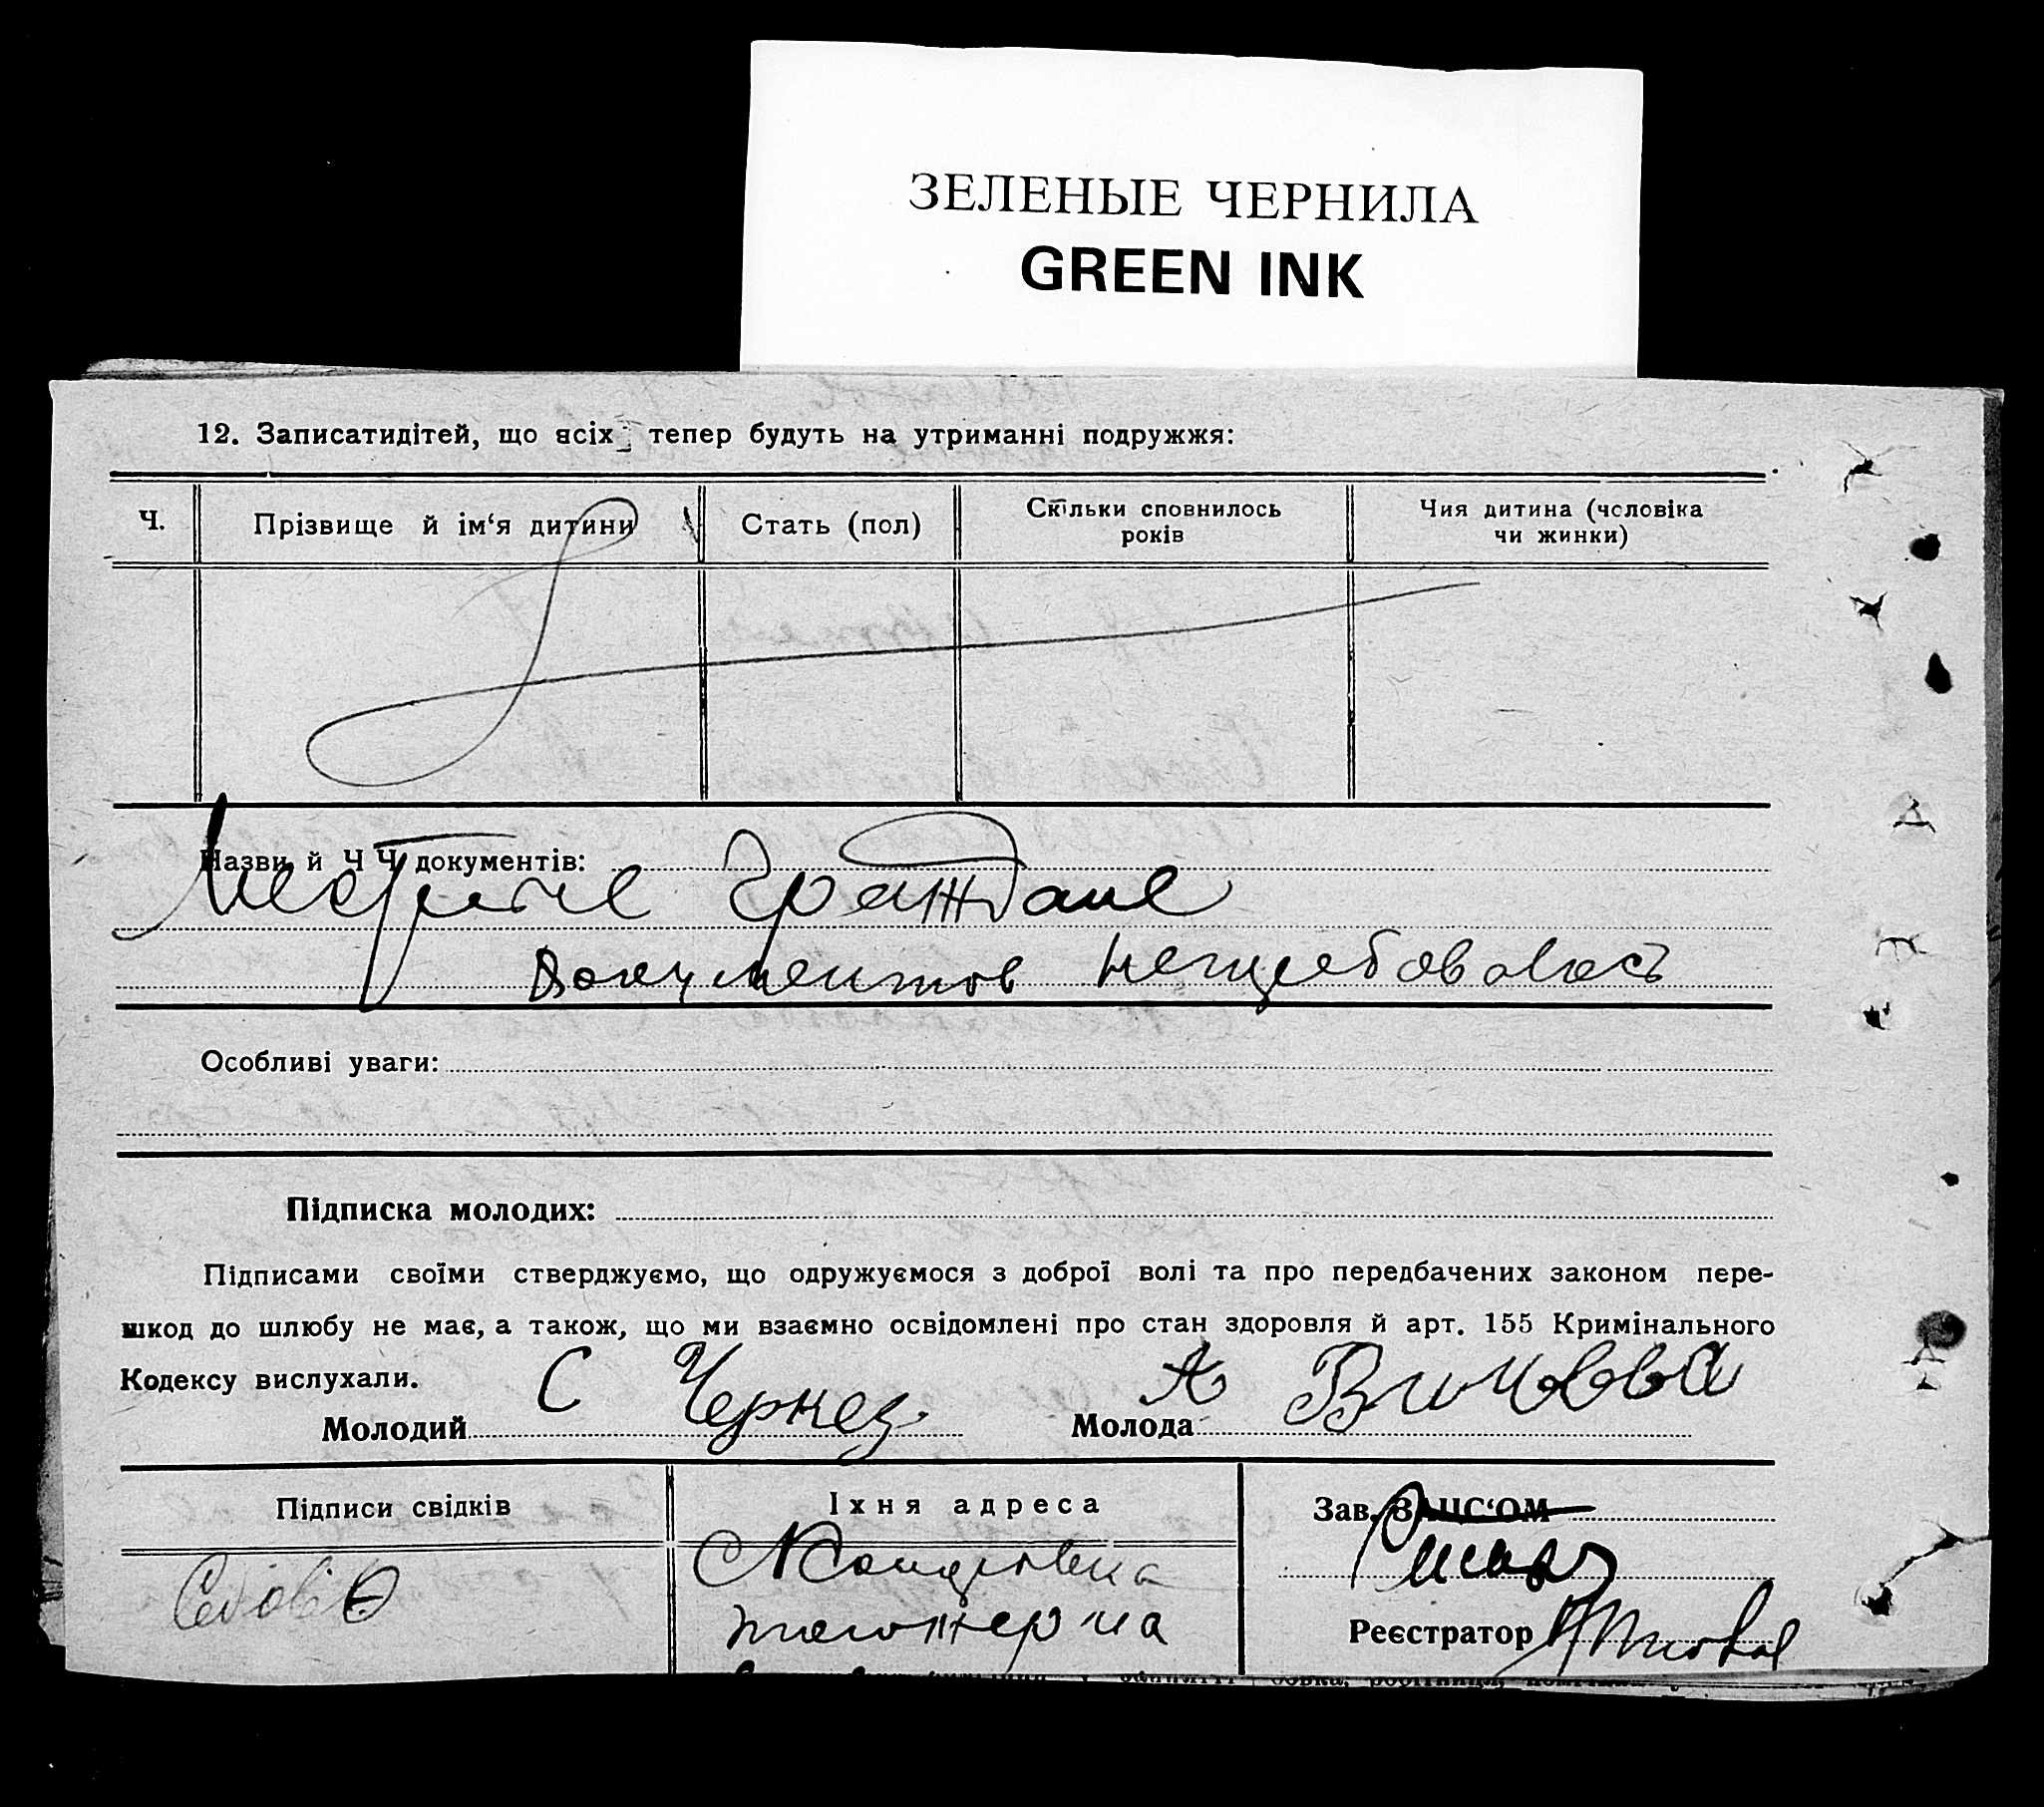 ЗЕЛЕНЫЕ ЧЕРНИЛА
GREEN INK
12. Записатидітей, що всіх тепер будуть на утриманні подружжя:
Ч.
Прізвище й ім‘я дитини
Стать (пол)
Скільки сповнилось
років
Чия дитина (чоловіка
чи жинки)
Назви й Ч Ч документів:
Местные Граждане
Документов нетребовалось
Особливі уваги:
Підписка молодих:
Підписами своїми стверджуємо, що одружуємося з доброї волі та про передбачених законом пере-
шкод до шлюбу не має, а також, що ми взаємно освідомлені про стан здоровля й арт. 155 Кримінального
Кодексу вислухали.
Молодий С Чернез
Молода А Вичова
Підписи свідків
Їхня адреса
Зав. ЗАЦС‘ОМ
Реєстратор